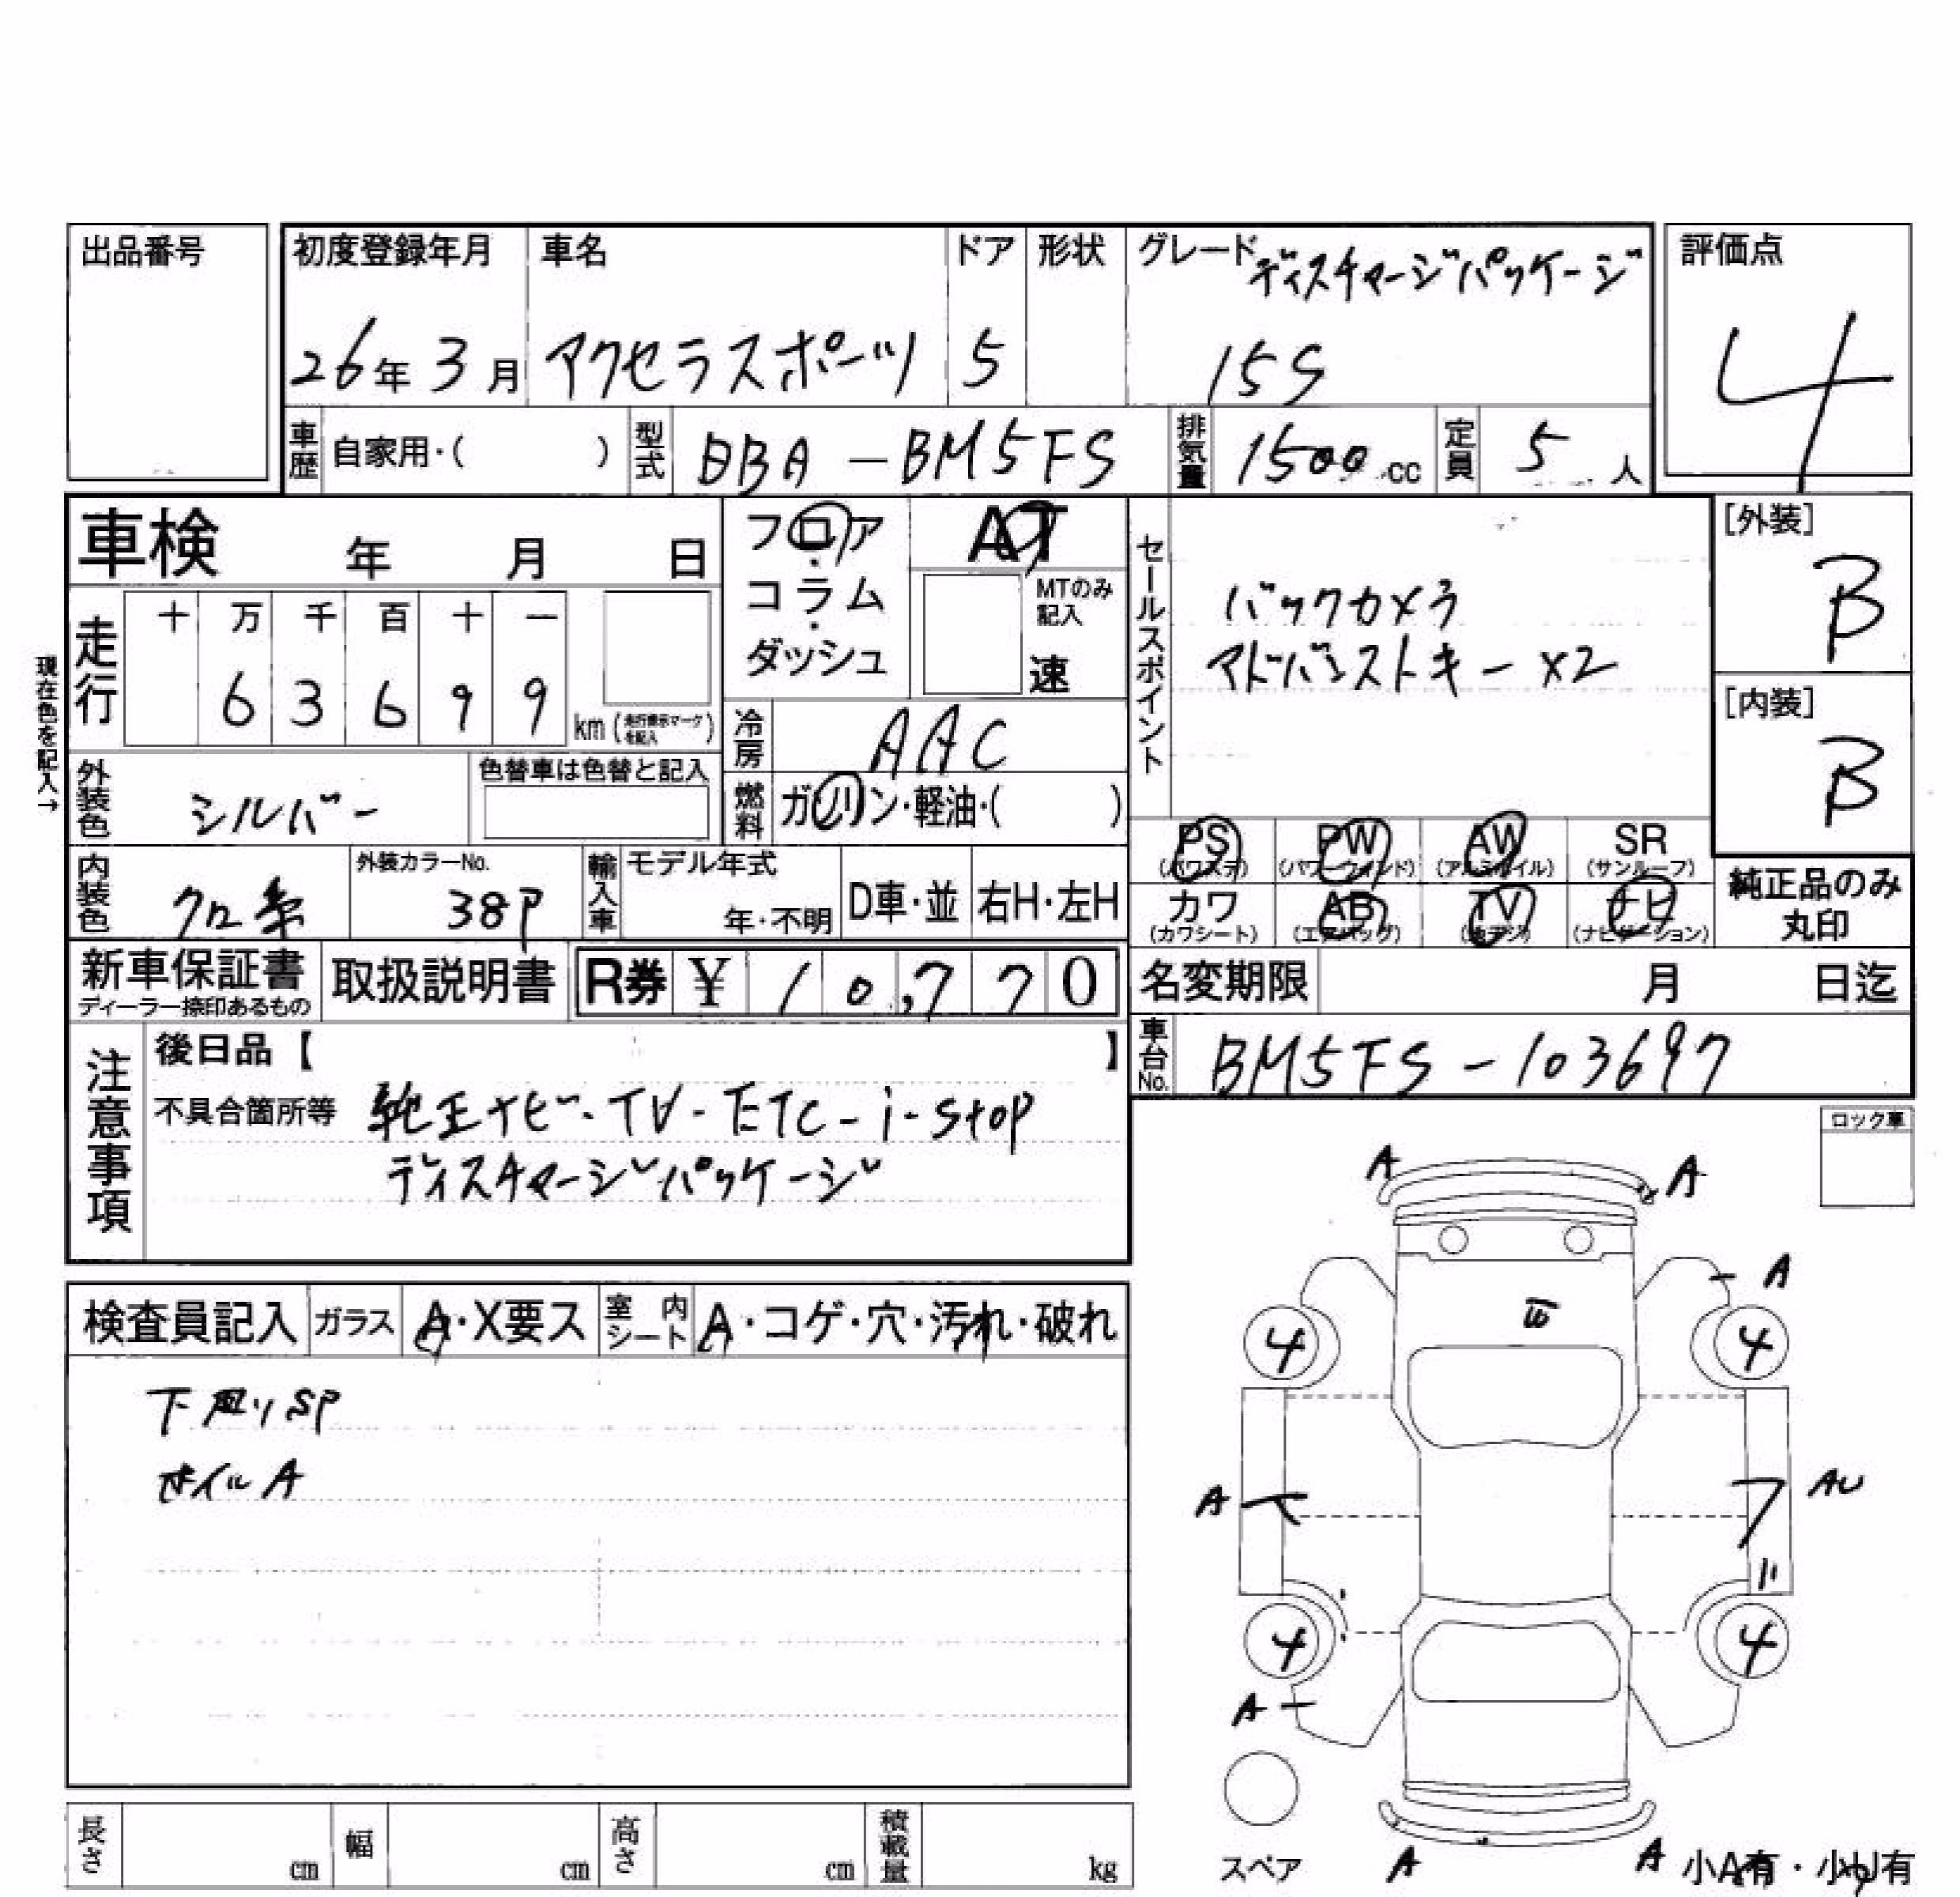 出品番号
初度登録年月
26年 3月
車名
アクセラスポーツ
ドア
5
形状
グレード
ディスチャージパッケージ
15S
評価点
4
車歴
自家用・( )
型式
DBA-BM5FS
排気量
1500 cc
定員
5 人
車検 年 月 日
フロア・コラム・ダッシュ
AT
MTのみ記入
速
セールスポイント
バックカメラ
アドバンストキー ×2
[外装]
B
[内装]
B
現在色を記入→
走行
十 万 千 百 十 一
6 3 6 9 9
km (走行表示マークを記入)
冷房
AAC
外装色
シルバー
色替車は色替と記入
燃料
ガソリン・軽油・( )
PS (パワステ)
PW (パワーウィンド)
AW (アルミホイル)
SR (サンルーフ)
カワ (カワシート)
AB (エアバッグ)
TV (地デジ)
ナビ (ナビゲーション)
純正品のみ丸印
内装色
クロ系
外装カラーNo.
38P
輸入車
モデル年式
年・不明
D車・並
右H・左H
新車保証書
ディーラー捺印あるもの
取扱説明書
R券 ¥ 10,770
名変期限 月 日迄
車台No.
BM5FS-103697
注意事項
後日品【 】
不具合箇所等
純正ナビ-TV-ETC-i-stop
ディスチャージパッケージ
ロック車
検査員記入
ガラス
A・X要ス
室内シート
A・コゲ・穴・汚れ・破れ
下廻りSP
ホイルA
A
A
A
4
4
A
AU
4
4
A
スペア
A
A
小A有・小U有
長さ cm
幅 cm
高さ cm
積載量 kg